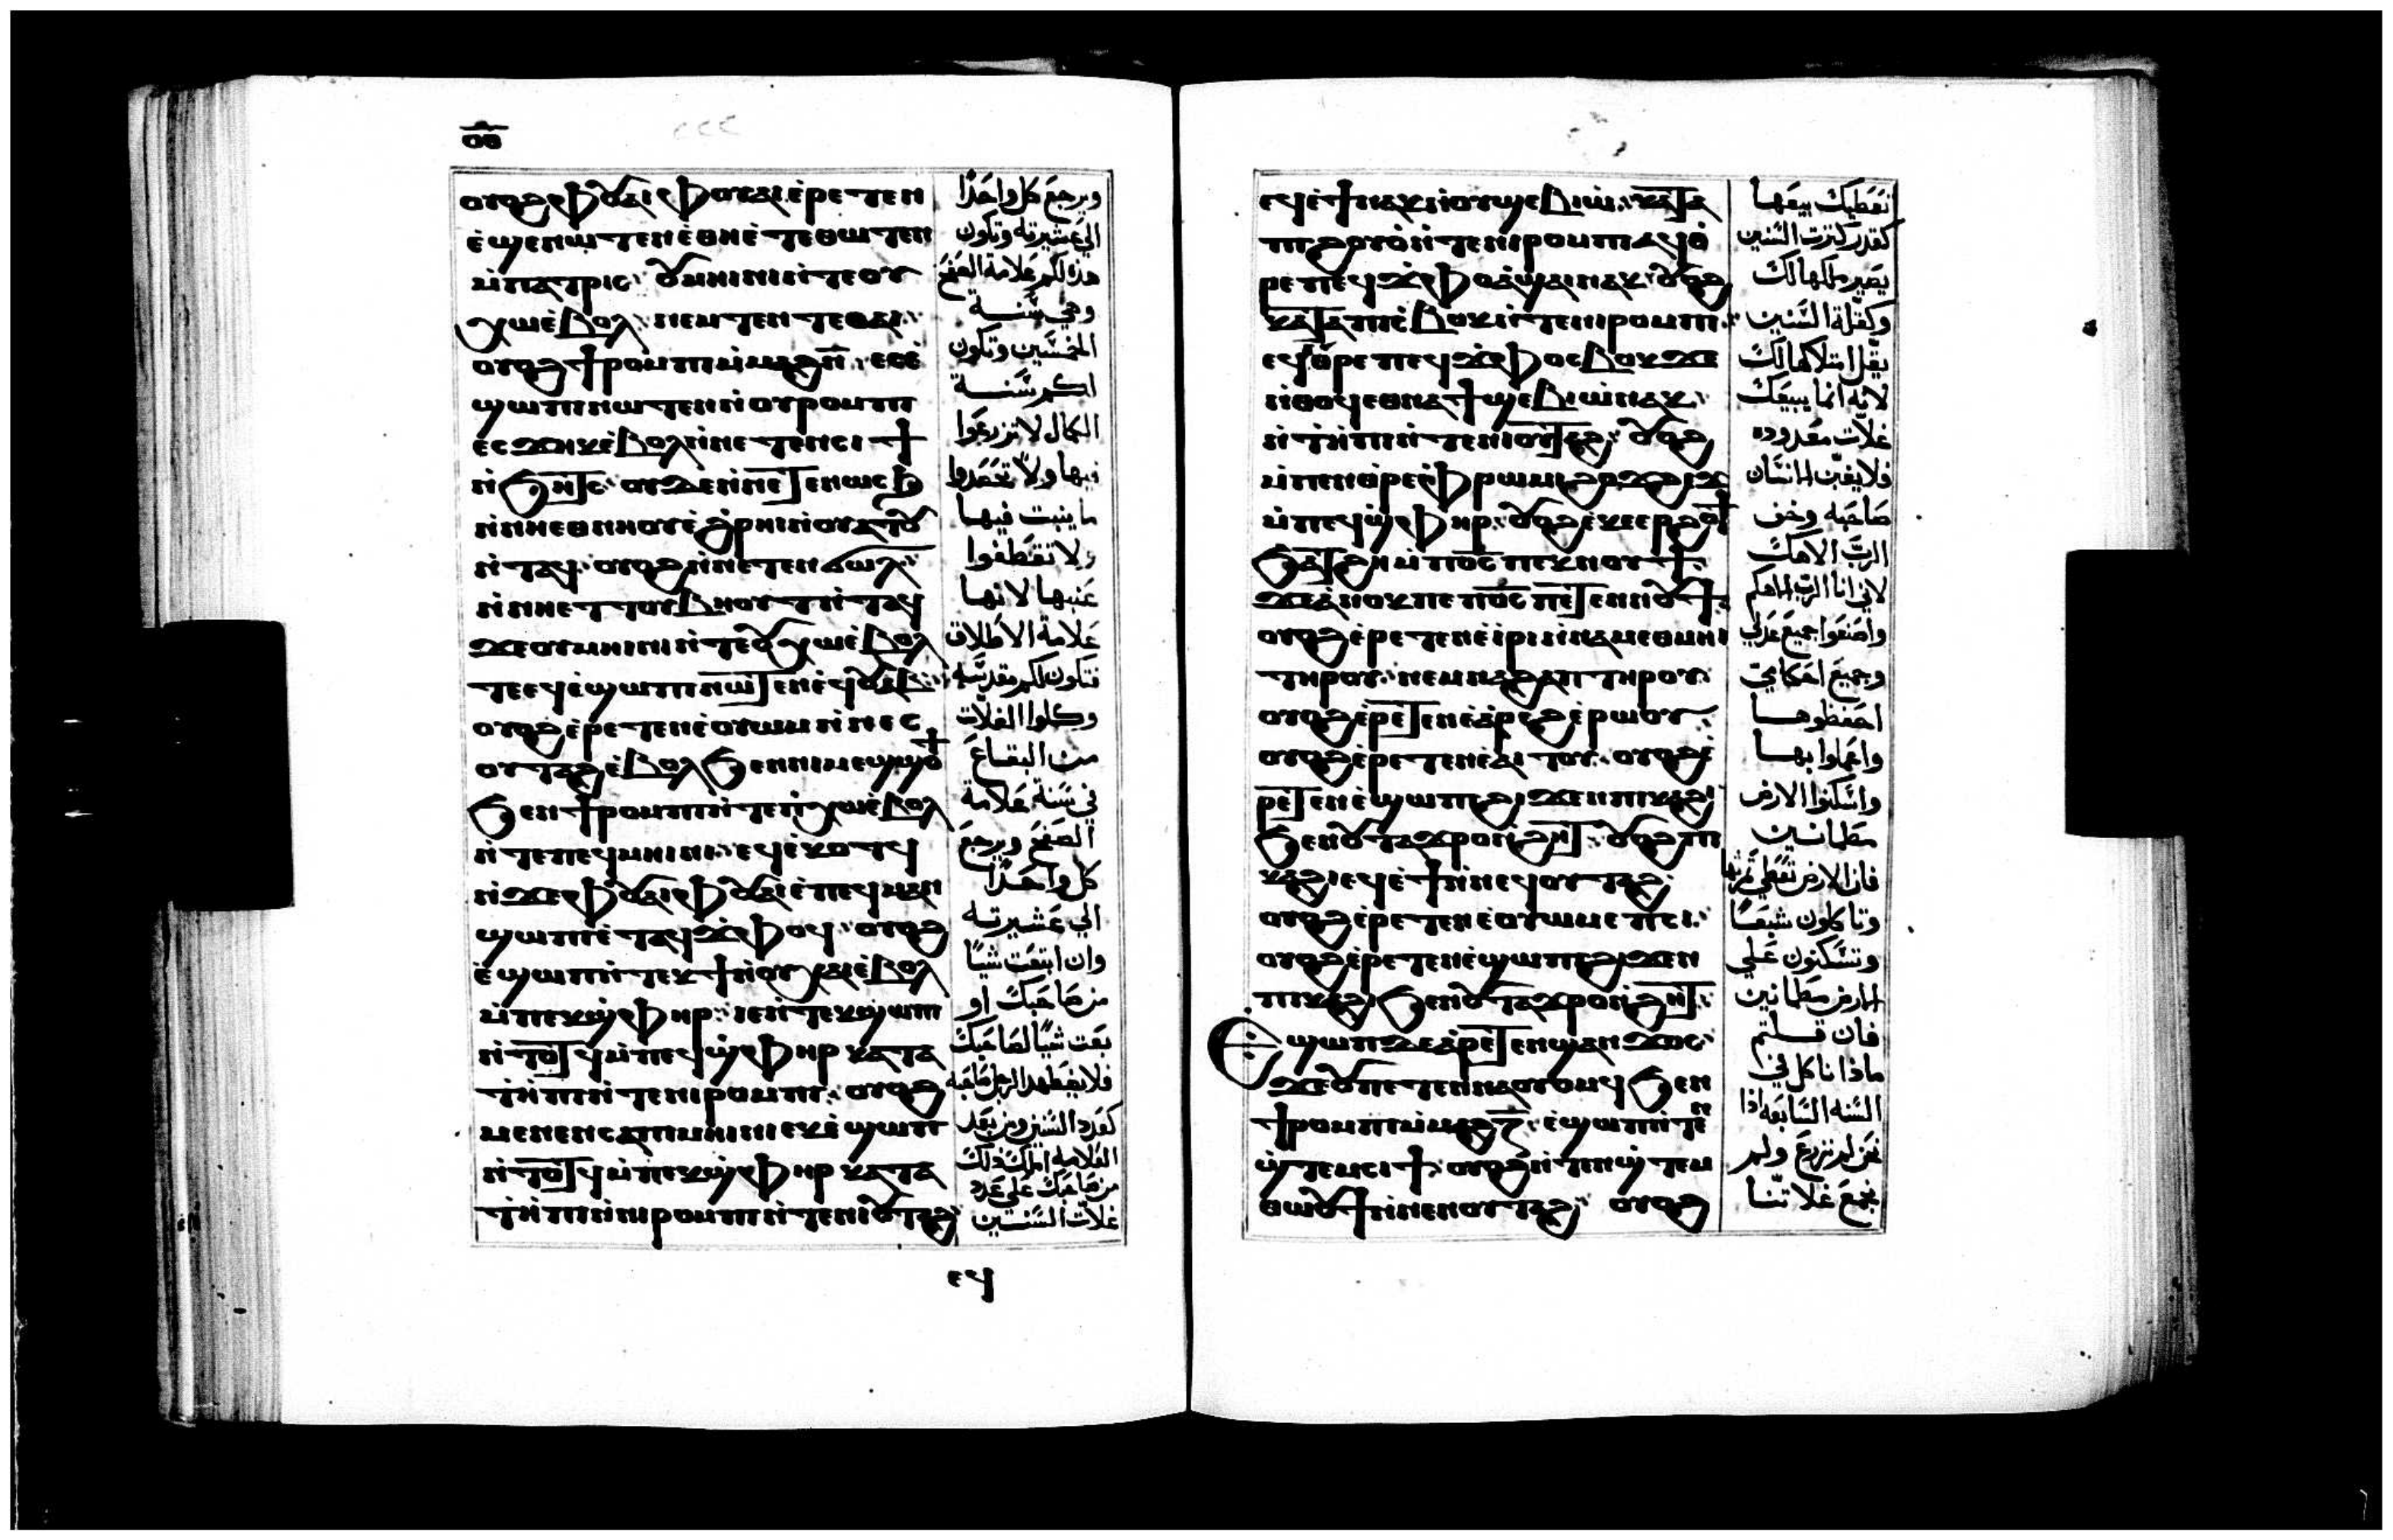 ⲟⲩⲟϩ ⲫⲟⲩⲁⲓ ⲫⲟⲩⲁⲓ ⲉ̀ⲣⲉⲧⲉⲛ
ⲉ̀ϣⲉⲛⲱⲧⲉⲛ ⲉ̀ⲑⲙⲉ̀ⲧⲉⲑⲱⲧⲉⲛ
ⲙ̀ⲡⲁⲧⲣⲓⲥ ⲟⲩⲙⲏⲓⲛⲓ ⲛ̀ⲧⲉⲟⲩ
ⲭⲱ ⲉ̀ⲃⲟⲗ
ⲟⲩⲟϩ ϯⲣⲟⲙⲡⲓ ⲙ̀ⲙⲁϩⲛ̅ ⲉⲥⲉ̀
ϣⲱⲡⲓ ⲛⲱⲧⲉⲛ ⲛ̀ⲟⲩⲣⲟⲙⲡⲓ
ⲉⲥϫⲏⲕ ⲉ̀ⲃⲟⲗ ⲛ̀ⲛⲉⲧⲉⲛⲥⲓϯ
ⲛ̀ϧⲏⲧⲥ ⲟⲩϫⲉ ⲛ̀ⲛⲉⲧⲉⲛⲱⲥϧ
ⲛ̀ⲛⲏⲉⲑⲛⲏⲟⲩ ⲉ̀ϩⲣⲏⲓ ⲛ̀ⲟⲩⲁⲧⲟⲩ
ⲛ̀ⲧⲁϥ ⲟⲩⲟϩ ⲛ̀ⲛⲉⲧⲉⲛϭⲱⲗ
ϫⲉ ⲟⲩⲙⲏⲓⲛⲓ ⲛ̀ⲧⲉⲟⲩⲭⲱ ⲉ̀ⲃⲟⲗ
ⲧⲉ ⲉϥⲉ̀ϣⲱⲡⲓ ⲛⲱⲧⲉⲛ ⲉ̀ϥⲟⲩⲁⲃ
ⲟⲩⲟϩ ⲉ̀ⲣⲉⲧⲉⲛⲉ̀ⲟⲩⲱⲙ ⲛ̀ⲛⲉⲥ
ⲟⲩⲧⲁϩ ⲉ̀ⲃⲟⲗ ϧⲉⲛ ⲛⲓⲙⲉϣϣⲟϯ
ϧⲉⲛ ϯⲣⲟⲙⲡⲓ ⲛ̀ⲧⲉⲡⲓⲭⲱ ⲉ̀ⲃⲟⲗ
ⲛ̀ⲧⲉⲡⲉϥⲙⲏⲓⲛⲓ ⲉϥⲉ̀ⲕⲟⲧϥ
ⲛ̀ϫⲉ ⲫⲟⲩⲁⲓ ⲫⲟⲩⲁⲓ ⲉ̀ⲡⲉϥⲙⲁⲛ
ϣⲱⲡⲓ ⲉ̀ⲧⲁϥϫⲫⲟϥ ⲟⲩⲟϩ
ⲉ̀ϣⲱⲡ ⲛ̀ⲧⲉⲕϯ ⲛ̀ⲟⲩⲭⲁⲓ ⲉ̀ⲃⲟⲗ
ⲙ̀ⲡⲉⲕϣ̀ⲫⲏⲣ ⲓⲉ ⲛ̀ⲧⲉⲕϣⲱⲡ
ⲛ̀ⲧⲟⲧϥ ⲙ̀ⲡⲉϥϣ̀ⲫⲏⲣ ⲕⲁⲧⲁ
ⲧ̀ⲏⲡⲓ ⲛ̀ⲧⲉⲛⲓⲣⲟⲙⲡⲓ ⲟⲩⲟϩ
ⲙⲉⲛⲉⲛⲥⲁ ⲡⲓⲙⲏⲓⲛⲓ ⲉⲕⲉ̀ϣⲱⲡ
ⲛ̀ⲧⲟⲧϥ ⲙ̀ⲡⲉⲕϣ̀ⲫⲏⲣ ⲕⲁⲧⲁ
ⲧ̀ⲏⲡⲓ ⲛ̀ⲛⲓⲣⲟⲙⲡⲓ ⲛ̀ⲧⲉⲛⲓⲟⲩⲧⲁϩ
ⲉϥ
ويرجع كل واحدًا
الي عشيرته وتكون
هذه لكم علامة الصفح
وهي سنة
الخمسين وتكون
لكم سنة
الكمال لا تزرعوا
فيها ولا تحصدوا
ما ينبت فيها
ولا تقطفوا
عنبها لانها
علامة الاطلاق
فتكون لكم مقدسة
وكلوا الغلات
من البقاع
في سنة علامة
الصفح ويرجع
كل واحدًا
الي عشيرته
وان ابتعت شيًا
من صاحبك او
بعت شيًا لصاحبك
كعدد السنين ومن بعد
من صاحبك علي عدد
غلات السنين
ⲉϥⲉ̀ϯ ⲛⲁⲕ ⲛ̀ⲟⲩϣⲉⲃⲓⲱ̀ ⲕⲁⲧⲁ
ⲡ̀ϩⲟⲩⲟ̀ ⲛ̀ⲧⲉⲛⲓⲣⲟⲙⲡⲓ ⲁϥⲟ̀
ⲣⲉ ⲡⲉϥϫ̀ⲫⲟ ⲁ̀ϣⲁⲓ ⲛⲁⲕ ⲟⲩⲟϩ
ⲕⲁⲧⲁ ⲡⲓⲉ̀ⲃⲟⲕ ⲛ̀ⲧⲉⲛⲓⲣⲟⲙⲡⲓ
ⲉϥⲟ̀ⲣⲉ ⲡⲉϥϫ̀ⲫⲟ ⲥⲃⲟⲕ ϫⲉ
ⲛ̀ⲑⲟϥ ⲉⲑⲛⲁϯϣⲉⲃⲓⲱ̀ ⲛⲁⲕ
ⲛ̀ⲧ̀ⲏⲡⲓ ⲛ̀ⲧⲉⲛⲓⲟⲩⲧⲁϩ ⲟⲩⲟϩ
ⲙ̀ⲡⲉⲛⲑ̀ⲣⲉ ⲫ̀ⲣⲱⲙⲓ ϩⲟϫϩⲉϫ
ⲙ̀ⲡⲉϥϣ̀ⲫⲏⲣ ⲟⲩⲟϩ ⲉ̀ⲕⲉⲉⲣϩⲟϯ
ϧⲁⲧϩⲏ ⲙ̀ⲡⲟ̅ⲥ̅ ⲡⲉⲕⲛⲟⲩϯ
ϫⲉ ⲁ̀ⲛⲟⲕ ⲡⲉ ⲡⲟ̅ⲥ̅ ⲡⲉⲧⲉⲛⲛⲟⲩϯ
ⲟⲩⲟϩ ⲉ̀ⲣⲉⲧⲉⲛⲉ̀ⲓ̀ⲣⲓ ⲛ̀ⲛⲁⲙⲉⲑⲙⲏⲓ
ⲧⲏⲣⲟⲩ ⲛⲉⲙ ⲛⲁϩⲁⲡ ⲧⲏⲣⲟⲩ
ⲟⲩⲟϩ ⲉ̀ⲣⲉⲧⲉⲛⲉ̀ⲁ̀ⲣⲉϩ ⲉ̀ⲣⲱⲟⲩ
ⲟⲩⲟϩ ⲉ̀ⲣⲉⲧⲉⲛⲉ̀ⲁⲓⲧⲟⲩ ⲟⲩⲟϩ ⲉ̀
ⲣⲉⲧⲉⲛⲉ̀ϣⲱⲡⲓ ϩⲓϫⲉⲛ ⲡⲓⲕⲁϩⲓ
ϧⲉⲛ ⲟⲩⲧⲁϫⲣⲟ ⲛ̀ϩⲏⲧ ⲟⲩⲟϩ ⲡⲓ
ⲕⲁϩⲓ ⲉϥⲉ̀ϯ ⲛ̀ⲛⲉϥⲟⲩⲧⲁϩ
ⲟⲩⲟϩ ⲉ̀ⲣⲉⲧⲉⲛⲉ̀ⲟⲩⲱⲙ ⲉⲡⲥⲓ
ⲟⲩⲟϩ ⲉ̀ⲣⲉⲧⲉⲛⲉ̀ϣⲱⲡⲓ ϩⲓϫⲉⲛ
ⲡⲓⲕⲁϩⲓ ϧⲉⲛ ⲟⲩⲧⲁϫⲣⲟ ⲛ̀ϩⲏⲧ
Ⲉϣⲱⲡ ϫⲉ ⲁ̀ⲣⲉⲧⲉⲛϣⲁⲛϫⲟⲥ
ϫⲉ ⲟⲩⲡⲉⲧⲉⲛⲛⲁⲟⲩⲟⲙϥ ϧⲉⲛ
ϯⲣⲟⲙⲡⲓ ⲙ̀ⲙⲁϩⲍ̅ ⲉ̀ϣⲱⲡ ⲛ̀ⲧⲉⲛ
ϣ̀ⲧⲉⲙⲥⲓϯ ⲟⲩⲟϩ ⲛ̀ⲧⲉⲛϣ̀ⲧⲉⲙ
ⲑⲱⲟⲩϯ ⲛ̀ⲛⲉⲛⲟⲩⲧⲁϩ ⲟⲩⲟϩ
كقدر كثرت السنين
يصير ملكها لك
وكقلة السنين
لانه انما يبيعك
غلات معدوده
فلا يغبن الانسان
صاحبه وخف
الرب الاهك
لاني انا الرب الاهكم
واصنعوا جميع عدلي
وجميع احكامي
احفظوها
واعملوا بها
واسكنوا الارض
مطمانين
وتاكلون شبعًا
وتسكنون علي
الارض مطمانين
فان قلتم
ماذا ناكل في
السنه السابعه اذا
نحن لم نزرع ولم
نجمع غلاتنا